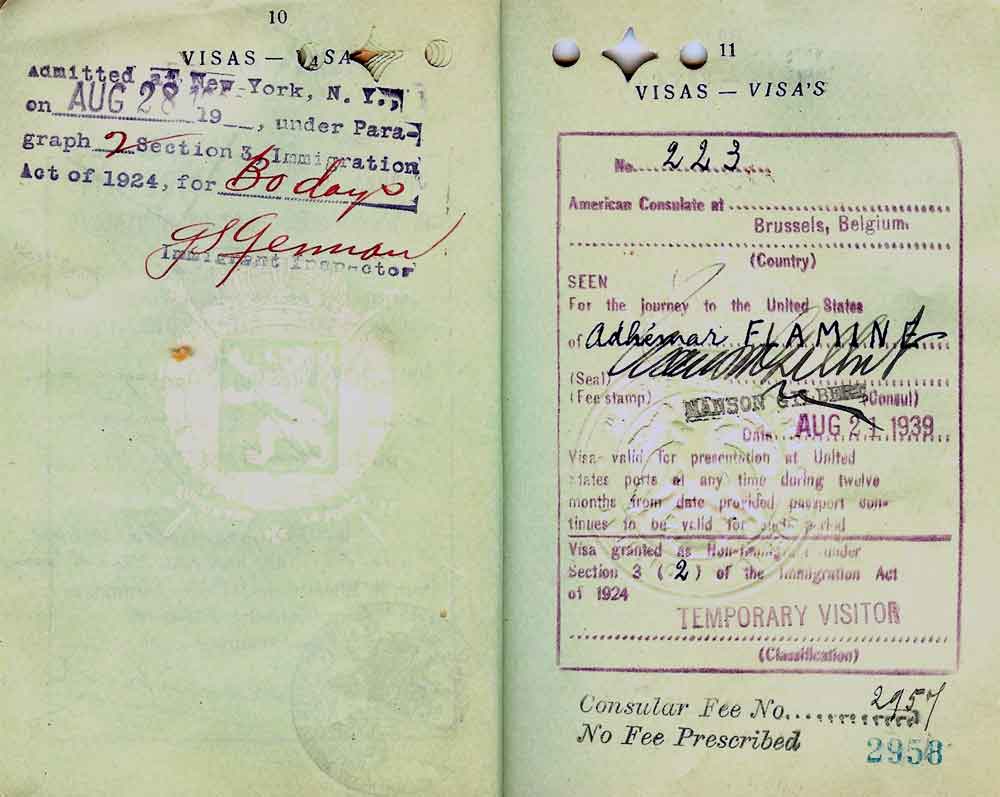 10
VISAS — VISA
Admitted at New York, N. Y.,
on AUG 28 19__, under Para-
graph 2 Section 3, Immigration
Act of 1924, for 60 days
G S German
Immigrant Inspector
11
VISAS — VISA'S
No. 223
American Consulate at
Brussels, Belgium.
(Country)
SEEN
For the journey to the United States
of Adhémar FLAMINE
(Seal)
(Fee stamp) MANSON GILBERT (Consul)
Date AUG 21 1939
Visa valid for presentation at United
States ports at any time during twelve
months from date provided passport con-
tinues to be valid for such period
Visa granted as Non-Immigrant under
Section 3 (2) of the Immigration Act
of 1924
TEMPORARY VISITOR
(Classification)
Consular Fee No. 2957
No Fee Prescribed
2958